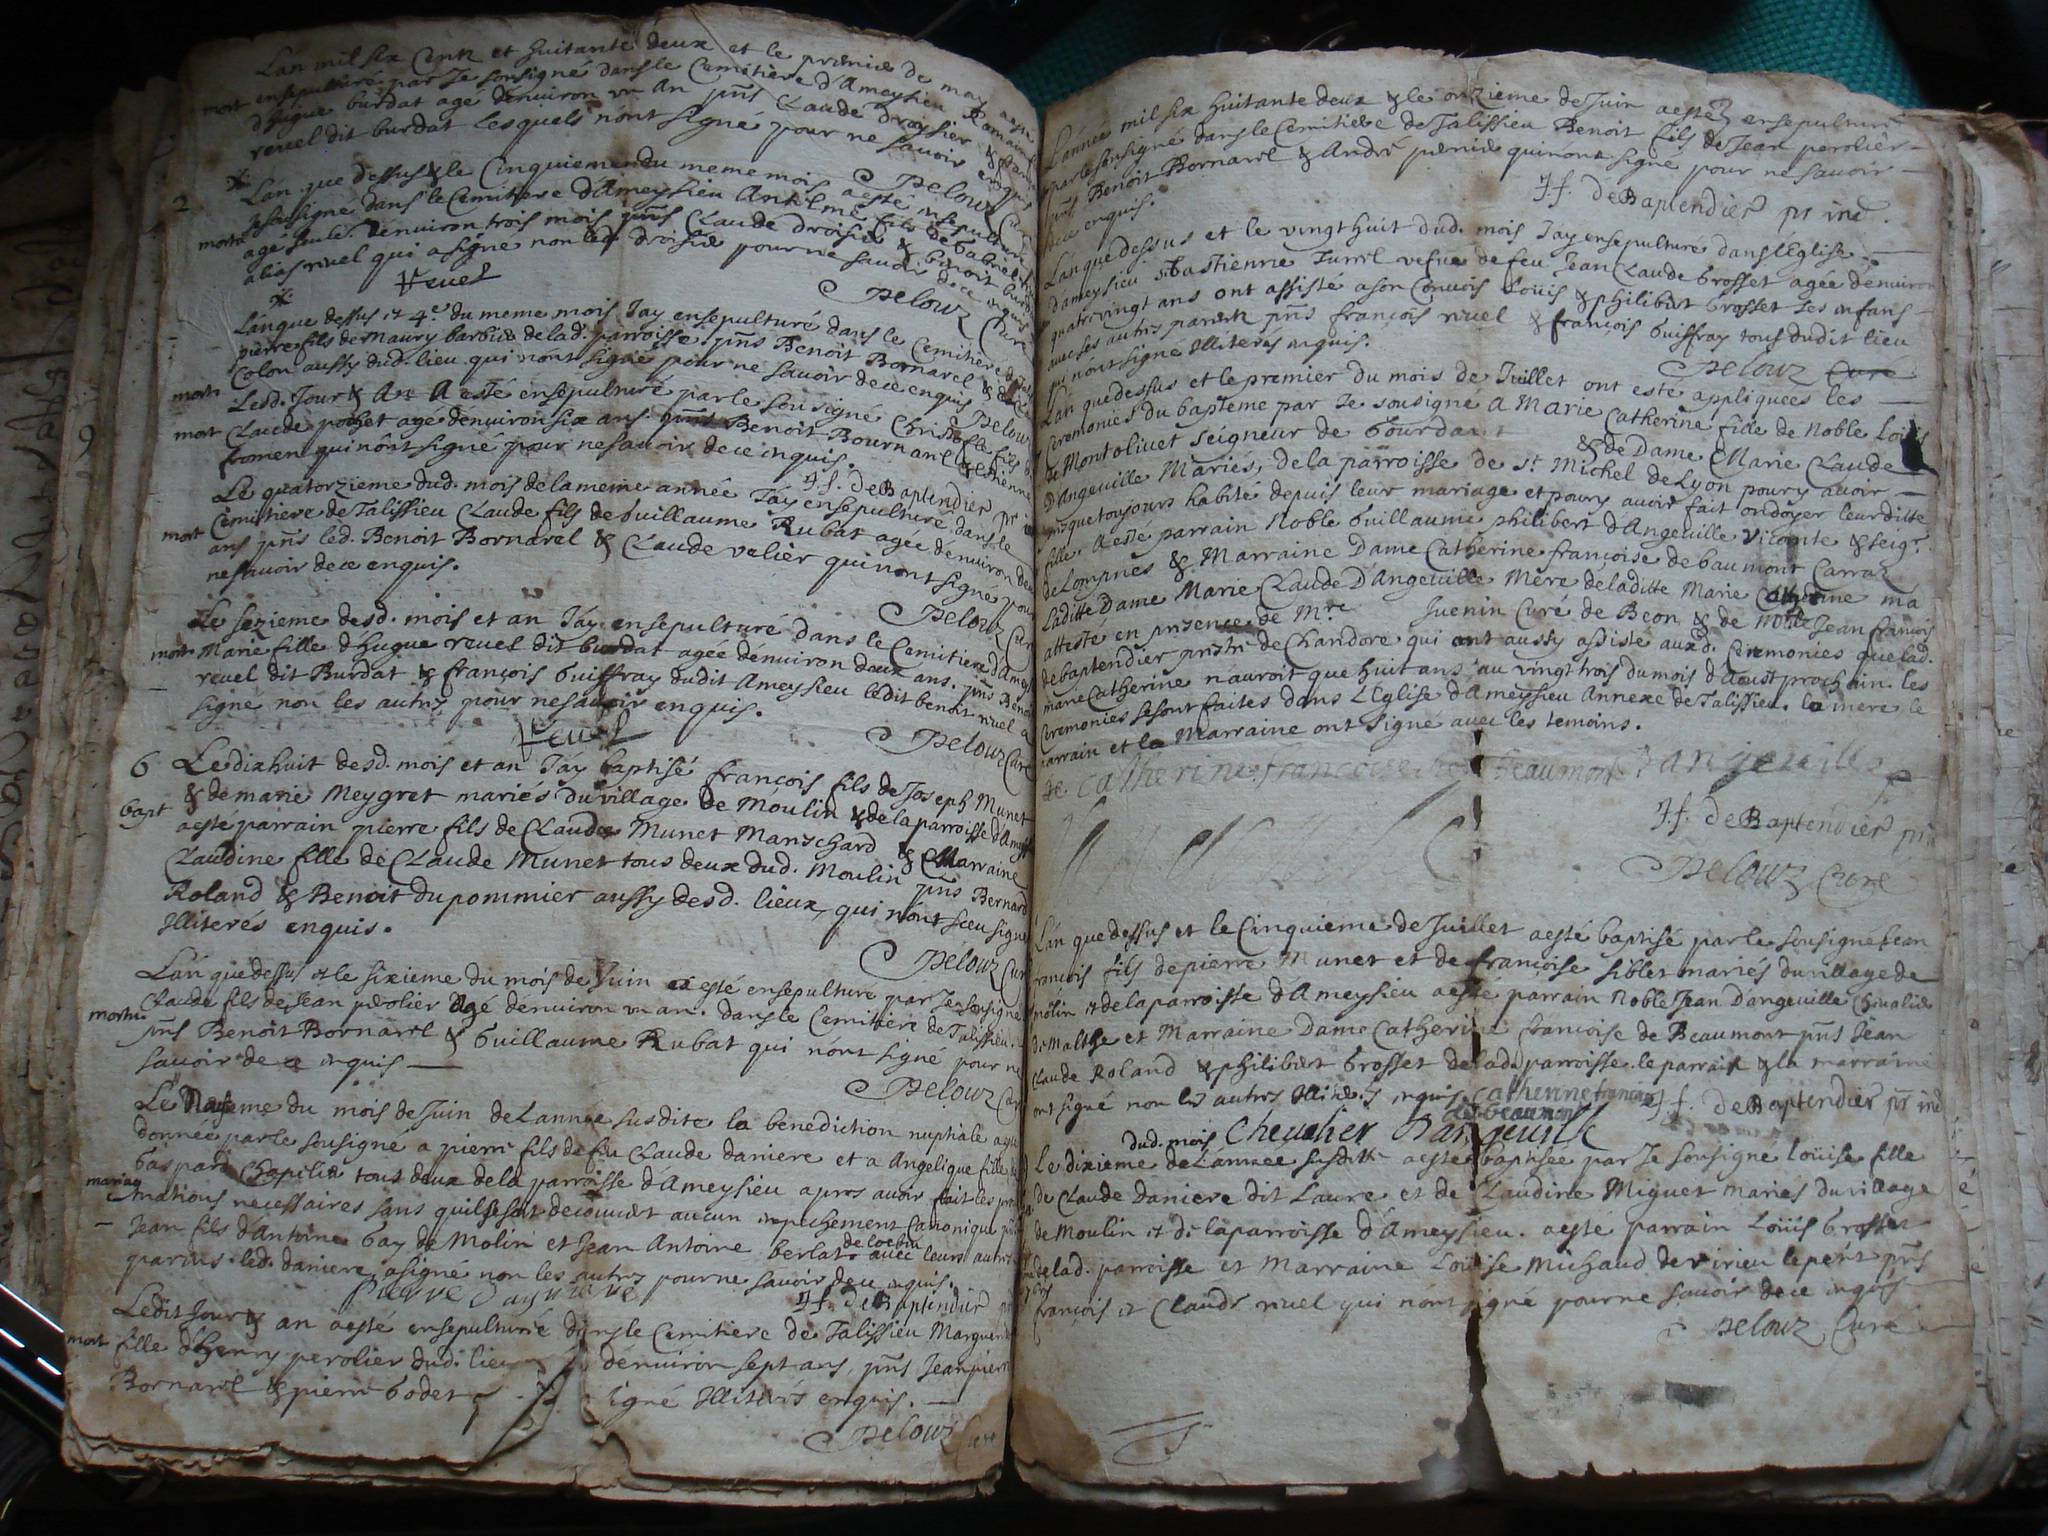 L'an mil six Cents et huitante deux et le premier de may aesté
mort ensepulturé par Je sousigné dans le Cemitiere d'Ameysieu Romain fils
d'hugue burdat agé d'enuiron vn An pnts Claude droisier &
reuel dit burdat lesquels n'ont signé pour ne sauoir enquis
Delouz Curé
L'an que dessus & le Cinquieme du meme mois aesté ensepulturé
2 Je sousigné dans le Cemitiere d'Ameysieu Antelme fils de Gabriel
morts agé seulet d'enuiron trois mois pnts Claude droisier & benoit burdat
alias reuel qui a signé non led droisier pour ne sauoir de ce enquis
Reuel
Delouz Curé
L'an que dessus et 4.e du meme mois Jay ensepulturé dans le Cemitiere
pierre fils de Maury barbier de lad. parroisse. pnts Benoit Bornarel &
Colon aussy dud. lieu qui n'ont signé pour ne sauoir de ce enquis
Delouz
morts Lesd. Jour & An A esté ensepulturé par le sousigné Christofla fils
mort Claude pochet agé d'enuiron six ans. pnts Benoit Bournarel & Etienne
fromen qui n'ont signé pour ne sauoir de ce inquis.
J.f. deBaptendier pr
Le quatorzieme dud. mois de la meme année Jay ensepulturé dans le
mort Cemitiere de Talissieu Claude fils de Guillaume Rubat agée d'enuiron deux
ans pnts led. Benoit Bornarel & Claude velier qui n'ont signé pour
ne sauoir de ce enquis.
Delouz Curé
Le sezieme desd. mois et an Jay ensepulturé dans le Cemitiere d'Ameysieu
morte Marie fille d'hugue reuel dit burdat agée d'enuiron deux ans. pnts Benoit
reuel dit Burdat & françois Guiffray dudit Ameysieu ledit benoit reuel a
signé non les autres pour ne sauoir enquis.
Reuel
Delouz Curé
6 Le dixhuit desd. mois et an Jay baptisé françois fils de Joseph Munet
bapt & de marie Meygret mariés du village de Moulin & de la parroisse d'Ameysieu
aesté parrain pierre fils de Claude Munet Mareschard & Marraine
Claudine fille de Claude Munet tous deux dud. Moulin pnts Bernard
Roland & Benoit dupommier aussy desd. lieux, qui n'ont sceu signer
Illiterés enquis.
Delouz Curé
L'an que dessus et le sixieme du mois de Juin a esté ensepulturé par Je sousigné
mortu Claude fils de Jean perolier Agé d'enuiron vn an. dans le Cemitiere de Talissieu.
pnts Benoit Bornarel & Guillaume Rubat qui n'ont signé pour ne
sauoir de ce inquis
Delouz Curé
Le du mois de Juin de L'année susdite la benediction nuptiale a esté
donnée par le sousigné a pierre fils de feu Claude daniere et a Angelique fille de
Gaspard Chapelier tous deux de la parroisse d'Ameysieu apres auoir fait les procla
mariag mations necessaires sans quil se soit decouuert aucun empechement Canonique pnts
Jean fils d'Antoine Gay de Molin et Jean Antoine berlat de Loebin auec leurs autres
parens. led. daniere a signé non les autres pour ne sauoir de ce inquis.
pierre daigniere
J.f. deBaptendier pr
Ledit Jour & an aesté ensepulturée dans le Cemitiere de Talissieu Marguerite
mort fille d'henry perolier dud. lieu d'enuiron sept ans, pnts Jean pierre
Bornarel & pierre Godet signé Illiterés enquis.
Delouz Curé
L'année mil six huitante deux & le onzieme de Juin aesté ensepulturé
par le sousigné dans le Cemitiere de Talissieu Benoit fils de Jean perolier
pnts Benoit Bornarel & André premier qui n'ont signé pour ne sauoir
de ce enquis.
J.f. deBaptendier pr ind.
L'an que dessus et le vingt huit dud. mois Jay ensepulturé dans l'Eglise
d'ameysieu sebastienne Jurrel vefue de feu Jean Claude Grosset agée d'enuiron
quatre vingt ans ont assisté a son Conuois Loüis & philibert Grosset ses enfans
auec ses autres parents pnts françois reuel & françois Guiffray tous dudit lieu
qui n'ont signé Illiterés inquis.
Delouz Curé
L'an que dessus et le premier du mois de Juillet ont esté appliquees les
Ceremonies du bapteme par Je sousigné a Marie Catherine fille de Noble Loüis
de Montoliuet seigneur de Gourdan & de Dame Marie Claude
D'Angeuille Mariés, de la parroisse de st Michel de Lyon pour y auoir
presque toujours habité depuis leur mariage et pour y auoir fait ondoyer leurditte
fille. A esté parrain Noble Guillaume philibert d'Angeuille vicomte & seigr.
de Lompnes & Marraine Dame Catherine françoise de baumont Carraz
Laditte Dame Marie Claude D'Angeuille Mère de laditte Marie Catherine m'a
attesté en presence de Mre Juenin Curé de Beon & de Mre Jean françois
de baptendier prestre de Chandore qui ont aussy assisté aux d. Ceremonies que lad.
marie Catherine n'auroit que huit ans au vingt trois du mois d'Aoust prochain. les
Ceremonies se sont faites dans L'Eglise d'Ameysieu Annexe de Talissieu. la mere le
parrain et la Marraine ont signé auec les temoins.
Catherine francoise de Beaumont Dangeuille
J.f. deBaptendier pr
Delouz Curé
L'an que dessus et le Cinquieme de Juillet aesté baptisé par le sousigné Jean
francois fils de pierre Munet et de françoise Siblet mariés du village de
molin & de la parroisse d'Ameysieu aesté parrain Noble Jean Dangeuille Cheualier
de Malthe et Marraine Dame Catherine françoise de Beaumont pnts Jean
Claude Roland & philibert Grosset de lad. parroisse. le parrain & la marraine
ont signé non les autres Illiterés inquis. Catherine francoise
de beaumont J.f. deBaptendier pr ind
Cheualier Dangeuille
dud. mois
Le dixieme de L'année susditte aesté baptisée par Je sousigné Loüise fille
de Claude daniere dit Laure et de Claudine Miguet mariés du village
de Moulin et de la parroisse d'Ameysieu. aesté parrain Loüis Grosset
de lad. parroisse et Marraine Loüise Michaud de virieu le petit pnts
françois et Claude reuel qui n'ont signé pour ne sauoir de ce inquis
Delouz Curé